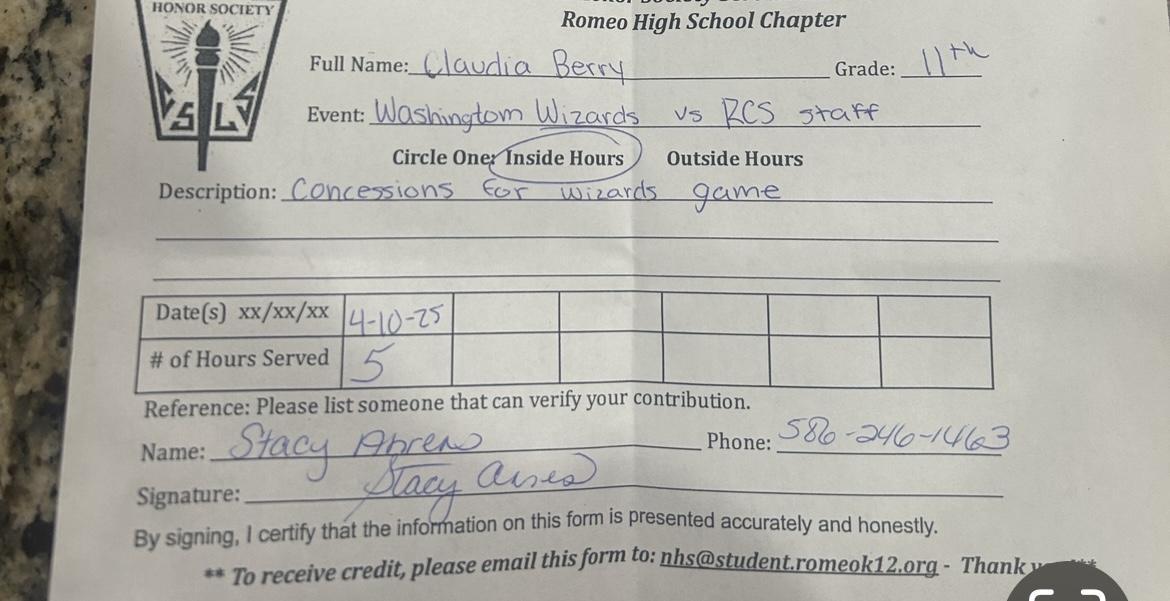 HONOR SOCIETY
Romeo High School Chapter
Full Name: Claudia Berry Grade: 11th
Event: Washingtom Wizards vs RCS staff
Circle One: Inside Hours Outside Hours
Description: Concessions for wizards game
Date(s) xx/xx/xx 4-10-25
# of Hours Served 5
Reference: Please list someone that can verify your contribution.
Name: Stacy Phone: 586-246-1463
Signature: Stacy
By signing, I certify that the information on this form is presented accurately and honestly.
** To receive credit, please email this form to: nhs@student.romeok12.org - Thank